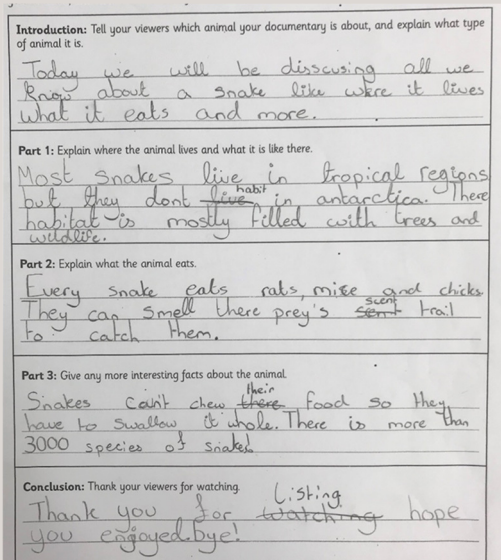 Introduction: Tell your viewers which animal your documentary is about, and explain what type
of animal it is.
Today we will be disscusing all we
Know about a snake like where it lives
what it eats and more.
Part 1: Explain where the animal lives and what it is like there.
Most snakes live in tropical regions
but they dont live habit in antarctica. There
habitat is mostly filled with trees and
wildlife.
Part 2: Explain what the animal eats.
Every snake eats rats, mise and chicks
They can smell there prey's sent scent trail
to catch them.
Part 3: Give any more interesting facts about the animal.
Snakes can't chew there their food so they
have to swallow it whole. There is more than
3000 species of snake!
Conclusion: Thank your viewers for watching.
Thank you for watching Listing hope
you engoyed.bye!